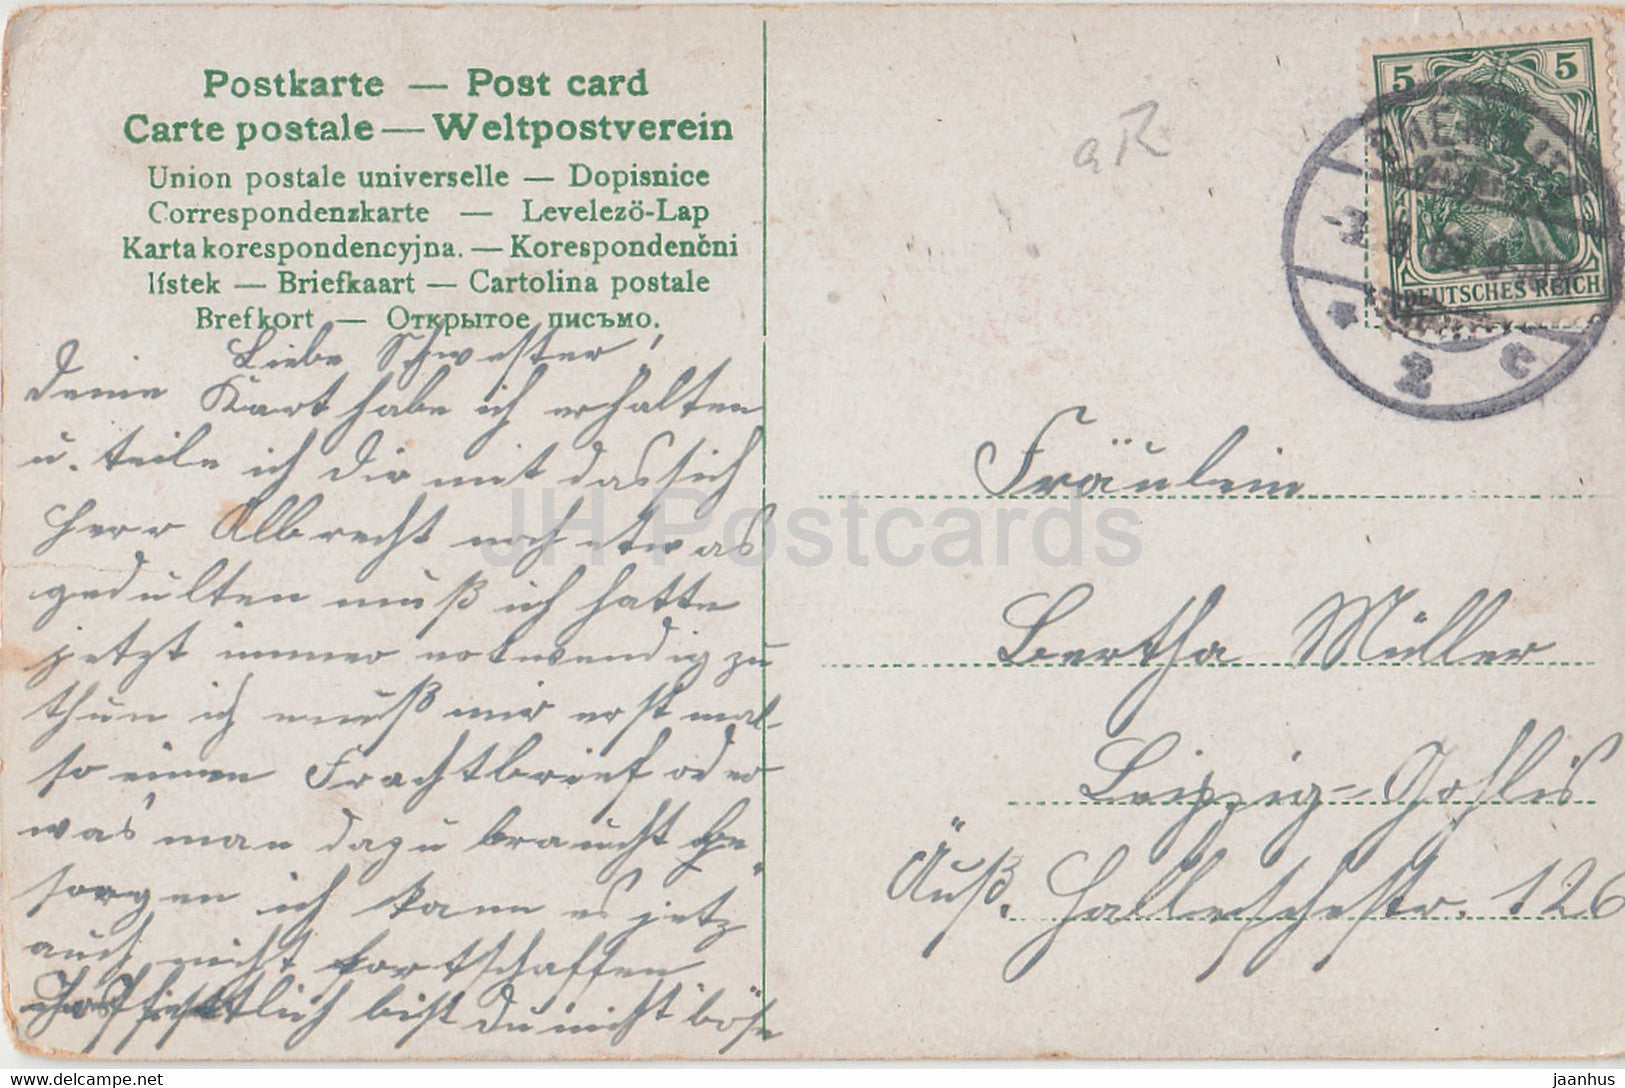 Postkarte — Post card
Carte postale — Weltpostverein
Union postale universelle — Dopisnice
Correspondenzkarte — Levelezö-Lap
Karta korespondencyjna. — Korespondenčni
lístek — Briefkaart — Cartolina postale
Brefkort — Открытое письмо.
Liebe Schwester!
deine Kart habe ich erhalten
u. teile ich dir mit das sich
Herr Albrecht noch etwas
gedulten muß ich hatte
jetzt immer notwendig zu
thun ich muß mir erst mal
so einen Frachtbrief oder
was man dazu braucht be-
sorgen ich kann es jetz
auch nicht fortschaffen
bist du nicht böse
aR
5 5
DEUTSCHES REICH
* 2 c
Fräulein
Bertha Müller
Leipzig-Gohlis
Äuß. Hallerschestr. 126
JH Postcards
delcampe.net
jaanhus